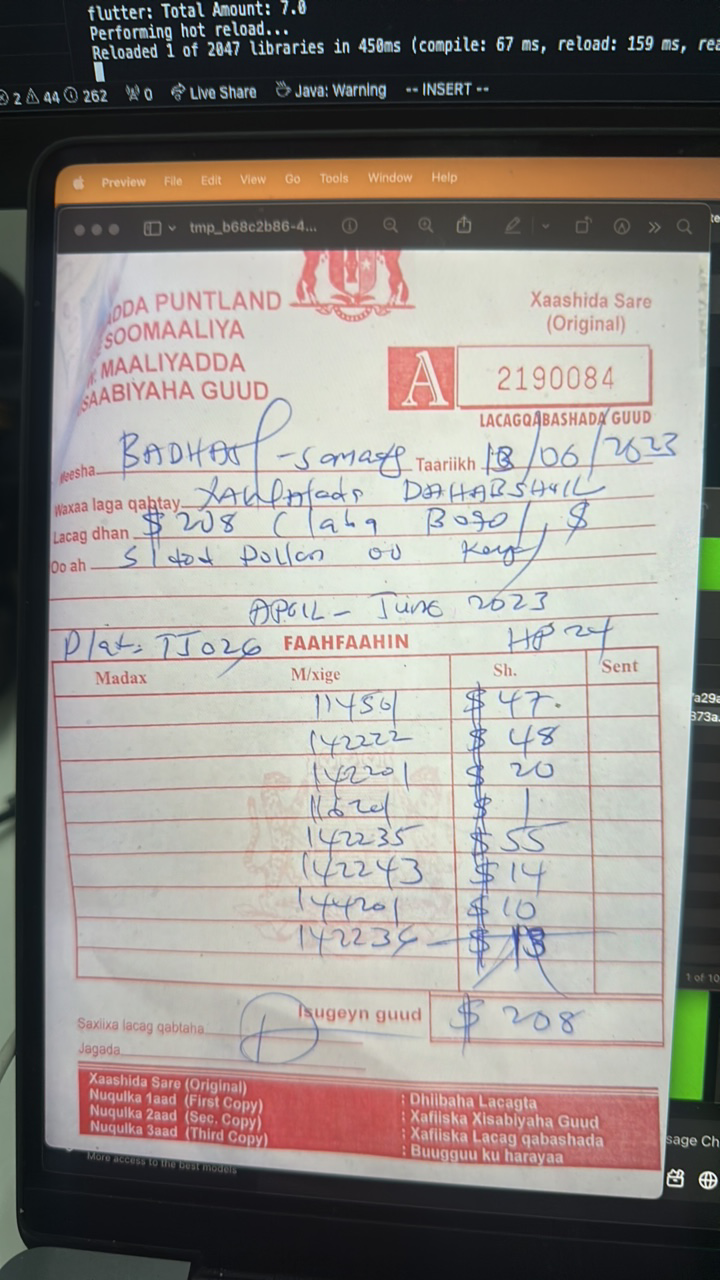 flutter: Total Amount: 7.0
Performing hot reload...
Reloaded 1 of 2047 libraries in 450ms (compile: 67 ms, reload: 159 ms, rea
2 44 262 0 Live Share Java: Warning -- INSERT --
Preview File Edit View Go Tools Window Help
tmp_b68c2b86-4...
DDA PUNTLAND
SOOMAALIYA
MAALIYADDA
SAABIYAHA GUUD
Xaashida Sare
(Original)
A 2190084
LACAGQABASHADA GUUD
eesha BADHAN Taariikh 13/06/2023
Waxaa laga qabtay DAHABSHIIL
Lacag dhan $ 208 (Laba Boqol, $
Oo ah Dollar oo
APRIL - June 2023
Plat. TJ026 FAAHFAAHIN
Madax M/xige Sh. Sent
11451 $ 47
142222 $ 48
142201 $ 20
$ 1
142235 $ 55
142243 $ 14
144201 $ 10
142234 $ 13
Isugeyn guud $ 208
Saxiixa lacag qabtaha
Jagada
Xaashida Sare (Original) : Dhiibaha Lacagta
Nuqulka 1aad (First Copy) : Xafiiska Xisabiyaha Guud
Nuqulka 2aad (Sec. Copy) : Xafiiska Lacag qabashada
Nuqulka 3aad (Third Copy) : Buugguu ku harayaa
More access to the best models
1 of 10
sage Ch